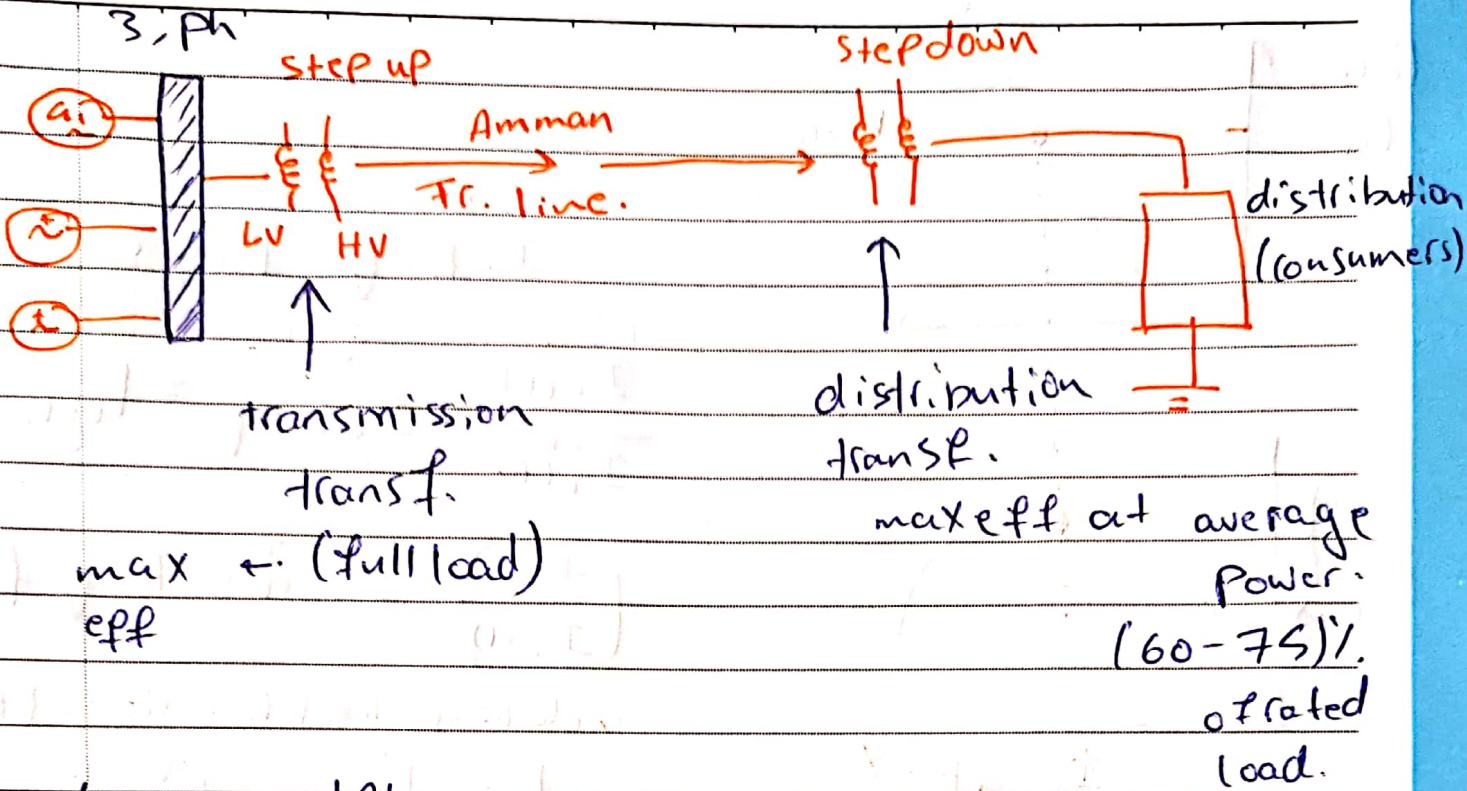 3, ph
step up
stepdown
Amman
Tr. line.
LV
HV
distribution
(consumers)
transmission
transf.
max ← (full load)
eff
distribution
transf.
max eff, at average
Power.
(60-75)%
of rated
load.